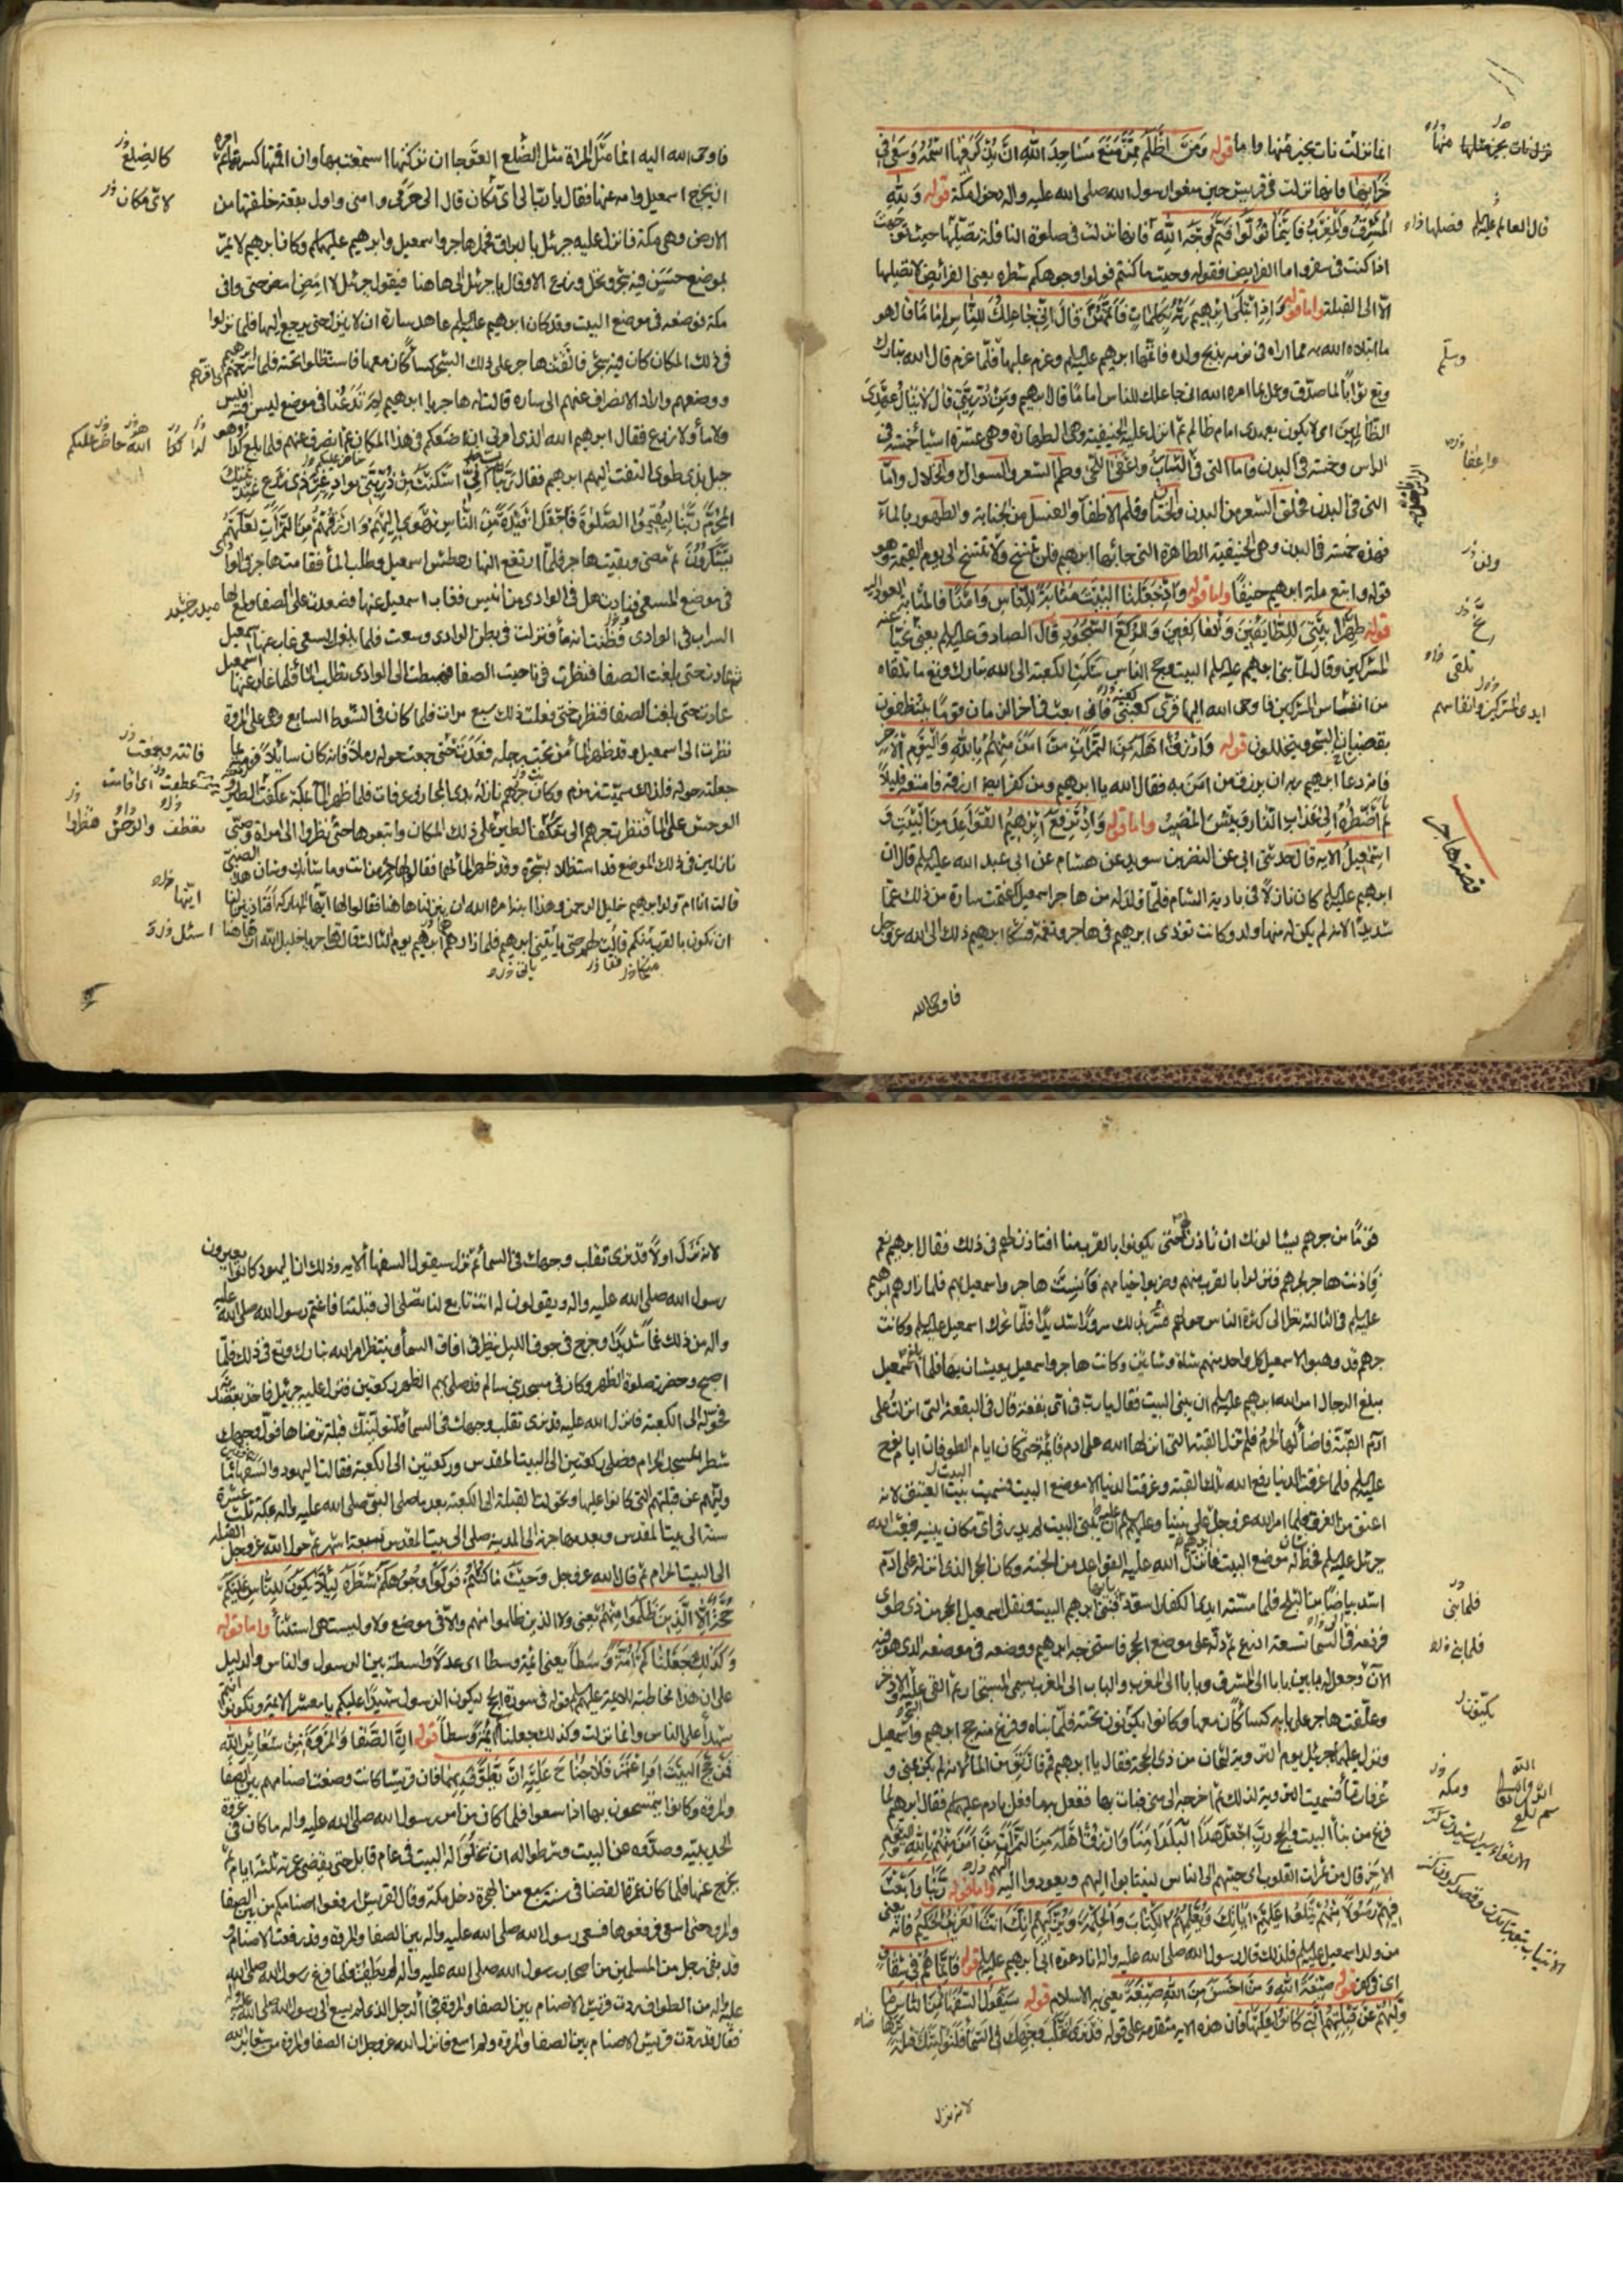 انما نزلت نات بخير منها واما قوله ومن اظلم ممن منع مساجد الله ان يذكر فيها اسمه وسعى في
خرابها فانها نزلت في قريش حين منعوا رسول الله صلى الله عليه واله دخول مكة قوله ولله
المشرق والمغرب فاينما تولوا فثم وجه الله فانها نزلت في صلوة النافلة تصليها حيث توجهت
اذا كنت في سفر واما الفرايض فقوله وحيث ما كنتم فولوا وجوهكم شطره يعني الفرائض لا تصليها
الا الى القبلة واما قوله واذ ابتلى ابراهيم ربه بكلمات فاتمهن قال اني جاعلك للناس اماما قال هو
ما ابتلاه الله به مما اراه في نومه بذبح ولده فاتمها ابرهيم عليه السلم وعزم عليها فلما عزم قال الله تبارك
الظالمين اى لا يكون بعهدى امام ظالم ثم انزل عليه الحنيفية وهى الطهارة وهى عشرة اشيا خمسة في
الراس وخمسة في البدن فاما التى في الراس واعفى اللحى وطم الشعر والسواك والخلال واما
التى في البدن فحلق الشعر من البدن والختان وقلم الاظفار والغسل من الجنابة والطهور بالماء
فهذه خمسة في البدن وهى الحنيفية الطاهرة التى جاء بها ابرهيم فلن تنسخ ولا تنسخ الى يوم القيمة وهو
قوله واتبع ملة ابرهيم حنيفا واما قوله واذ جعلنا البيت مثابة للناس وامنا فالمثابة العود اليه
قوله طهرا بيتى للطائفين والعاكفين والركع السجود قال الصادق عليه السلم يعنى نحيا عنه
المشركين وقال لما بنى ابرهيم عليه السلم البيت وحج الناس شكت الكعبة الى الله تبارك وتع ما تلقاه
من انفاس المشركين فاوحى الله اليها قرى كعبتى فانى ابعث في اخر الزمان قوما يتنظفون
بقضبان الشجر ويتخللون قوله وارزق اهله من الثمرات من امن منهم بالله واليوم الآخر
فانه دعا ابرهيم ربه ان يرزق من امن به فقال الله يا ابرهيم ومن كفر ايضا ارزقه فامتعه قليلا
ثم اضطره الى عذاب النار وبئس المصير واما قوله واذ يرفع ابراهيم القواعد من البيت و
اسمعيل الايه قال حدثنى ابى عن النضر بن سويد عن هشام عن ابى عبد الله عليه السلم قال ان
ابرهيم عليه السلم كان نازلا في بادية الشام فلما ولد له من هاجر اسمعيل اغتمت سارة من ذلك غما
شديدا لانه لم يكن له منها ولد وكانت تؤذى ابرهيم في هاجر وتغمه فشكا ابرهيم ذلك الى الله عز وجل
فاوحى الله
قصة هاجر
فاوحى الله اليه انما مثل المراة مثل الضلع العوجا ان تركتها استمتعت بها وان اقمتها كسرتها ثم امره
ان يخرج اسمعيل وامه عنها فقال يا رب الى اى مكان قال الى حرمى وامنى واول بقعة خلقتها من
الارض وهى مكة فانزل عليه جبرئل بالبراق فحمل هاجر واسمعيل وابرهيم عليهما السلم وكان ابرهيم لا يمر
بموضع حسن فيه شجر ونخل وزرع الا وقال يا جبرئل الى هاهنا فيقول جبرئل لا امض امض حتى وافى
مكة فوضعه في موضع البيت وقد كان ابرهيم عليه السلم عاهد سارة ان لا ينزل حتى يرجع اليها فلما نزلوا
في ذلك المكان كان فيه شجر فالقت هاجر على ذلك الشجر كساء كان معها فاستظلوا تحته فلما سرحهم ابرهيم
ووضعهم واراد الانصراف عنهم الى سارة قالت له هاجر يا ابرهيم لم تدعنا في موضع ليس فيه انيس
ولا ماء ولا زرع فقال ابرهيم الله الذى امرنى ان اضعكم في هذا المكان ثم انصرف عنهم فلما بلغ كدا وهو
جبل بذى طوى التفت اليهم ابرهيم فقال ربنا انى اسكنت من ذريتى بواد غير ذى زرع عند بيتك
المحرم ربنا ليقيموا الصلوة فاجعل افئدة من الناس تهوى اليهم وارزقهم من الثمرات لعلهم
يشكرون ثم مضى وبقيت هاجر فلما ارتفع النهار عطش اسمعيل وطلب الماء فقامت هاجر في الوادى
في موضع المسعى فنادت هل في الوادى من انيس فغاب اسمعيل عنها فصعدت على الصفا ولمع لها
السراب في الوادى وظنت انه ماء فنزلت في بطن الوادى وسعت فلما بلغوا المسعى غاب عنها اسمعيل
عادت حتى بلغت الصفا فنظرت حتى فعلت ذلك سبع مرات فلما كان في الشوط السابع وهى على المروة
نظرت الى اسمعيل وقد ظهر الماء من تحت رجله فعدت حتى جمعت حوله رملا فانه كان سائلا فزمته بما
جعلته حوله فلذلك سميت زمزم وكان جرهم نازلة بذى المجاز وعرفات فلما ظهر الماء بمكة عكفت الطير
الوحش على الماء فنظرت جرهم الى تعكف الطير على ذلك المكان واتبعوها حتى نظروا الى امراة وصبى
نازلين في ذلك الموضع قد استظلا بشجرة وقد ظهر الماء لهما فقالوا لهاجر من انت وما شانك وشان هذا الصبى
قالت انا ام ولد ابرهيم خليل الرحمن وهذا ابنه امره الله ان ينزلنا هاهنا فقالوا لها ايتها المباركة افتاذنين لنا
ان نكون بالقرب منكم قالت لهم حتى ياتينى ابرهيم فلما زارهم ابرهيم يوم الثالث قالت هاجر يا خليل الله ان هاهنا
قوما من جرهم يسئالونك ان تاذن لهم حتى يكونوا بالقرب منا افتاذن لهم في ذلك فقال ابرهيم نعم
فاذنت هاجر لجرهم فنزلوا بالقرب منهم وضربوا خيامهم فانست هاجر واسمعيل بهم فلما زارهم ابرهيم
عليه السلم في الثالثة نظر الى كثرة الناس حولهم فسر بذلك سرورا شديدا فلما تحرك اسمعيل عليه السلم وكانت
جرهم قد وهبوا لاسمعيل كل واحد منهم شاة وشاتين وكانت هاجر واسمعيل يعيشان بها فلما بلغ اسمعيل
مبلغ الرجال امر الله ابرهيم عليه السلم ان يبنى البيت فقال يا رب في اى بقعة قال في البقعة التى انزلت على
ادم القبة فاضاء لها الحرم فلم تزل القبة التى انزلها الله على ادم قائمة حتى كان ايام الطوفان ايام نوح
عليه السلم فلما غرقت الدنيا رفع الله تلك القبة وغرقت الدنيا الا موضع البيت فسميت البيت العتيق لانه
اعتق من الغرق فلما امر الله عز وجل ابرهيم عليه السلم ان يبنى البيت لم يدر في اى مكان يبنيه فبعث الله
جبرئل عليه السلم فخط له موضع البيت فانزل الله عليه القواعد من الجنة وكان الحجر الذى انزله على ادم
اشد بياضا من الثلج فلما مسته ايدى الكفار اسود فبنى ابرهيم البيت ونقل اسمعيل الحجر من ذى طوى
فرفعه في السماء تسعة اذرع ثم دله على موضع الحجر فاستخرجه ابرهيم ووضعه في موضعه الذى هو فيه
الان وجعل له بابين بابا الى المشرق وبابا الى المغرب والباب الى المغرب يسمى المستجار ثم القى عليه الشجر والاذخر
وعلقت هاجر على بابه كساء كان معها وكانوا يكونون تحته فلما بناه وفرغ منه حج ابرهيم واسمعيل
ونزل عليهما جبرئل يوم التروية لثمان من ذى الحجة فقال يا ابرهيم قم فارتو من الماء لانه لم يكن بمنى و
عرفات ماء فسميت التروية لذلك ثم اخرجه الى منى فبات بها ففعل به ما فعل بادم عليه السلم فقال ابرهيم لما
فرغ من بناء البيت والحج رب اجعل هذا البلد امنا وارزق اهله من الثمرات من امن منهم بالله واليوم
الاخر قال من ثمرات القلوب اى حببهم الى الناس لينتابوا اليهم ويعودوا اليهم واما قوله ربنا وابعث
فيهم رسولا منهم يتلوا عليهم اياتك ويعلمهم الكتاب والحكمة ويزكيهم انك انت العزيز الحكيم فانه يعنى
من ولد اسمعيل عليه السلم فلذلك قال رسول الله صلى الله عليه واله انا دعوة ابى ابرهيم عليه السلم قوله فانما هم في شقاق
اى في كفر قوله صبغة الله ومن احسن من الله صبغة يعنى به الاسلام قوله سيقول السفهاء من الناس ما
وليهم عن قبلتهم التى كانوا عليها فان هذه الايه متقدمة على قوله قد نرى تقلب وجهك في السماء فلنولينك قبلة
لانه نزل
لانه نزل اولا قد نرى تقلب وجهك في السماء ثم نزل سيقول السفهاء الايه وذلك ان اليهود كانوا يعيرون
رسول الله صلى الله عليه واله ويقولون له انت تابع لنا تصلى الى قبلتنا فاغتم رسول الله صلى الله عليه
واله من ذلك غما شديدا وخرج في جوف الليل ينظر في افاق السماء وينتظر امر الله تبارك وتع في ذلك فلما
اصبح وحضرت صلوة الظهر وكان في مسجد بنى سالم قد صلى بهم الظهر ركعتين فنزل عليه جبرئل فاخذ بعضديه
فحوله الى الكعبة فانزل الله عليه قد نرى تقلب وجهك في السماء فلنولينك قبلة ترضاها فول وجهك
شطر المسجد الحرام فصلى ركعتين الى البيت المقدس وركعتين الى الكعبة فقالت اليهود والسفهاء ما
وليهم عن قبلتهم التى كانوا عليها وتحولت القبلة الى الكعبة بعد ما صلى النبى صلى الله عليه واله بمكة ثلث عشرة
سنة الى بيت المقدس وبعد مهاجرته الى المدينة صلى الى بيت المقدس سبعة اشهر ثم حول الله عز وجل القبلة
الى البيت الحرام ثم قال الله عز وجل وحيث ما كنتم فولوا وجوهكم شطره لئلا يكون للناس عليكم
حجة الا الذين ظلموا منهم يعنى ولا الذين ظلموا منهم والا في موضع ولا وليست هى استثناء واما قوله
وكذلك جعلناكم امة وسطا يعنى ائمة وسطا اى عدلا واسطة بين الرسول والناس والدليل
على ان هذا مخاطبة للائمة عليهم السلم قوله في سورة الحج ليكون الرسول شهيدا عليكم يا معشر الائمة وتكونوا انتم
شهداء على الناس وانما نزلت وكذلك جعلناكم ائمة وسطا قوله ان الصفا والمروة من شعائر الله
فمن حج البيت او اعتمر فلا جناح عليه ان يطوف بهما فان قريشا كانت وضعت اصنامهم بين الصفا
والمروة وكانوا يتمسحون بها اذا سعوا فلما كان من امر رسول الله صلى الله عليه واله ما كان في غزوة
الحديبية وصدوه عن البيت وشرطوا له ان يخلوا له البيت في عام قابل حتى يقضى عمرته ثلثة ايام ثم
يخرج عنها فلما كان عمرة القضا في سنة سبع من الهجرة دخل مكة وقال لقريش ارفعوا اصنامكم من بين الصفا
والمروة حتى اسعى فرفعوها فسعى رسول الله صلى الله عليه واله بين الصفا والمروة وقد رفعت الاصنام
قد بقى رجل من المسلمين من اصحاب رسول الله صلى الله عليه واله لم يطف فلما فرغ رسول الله صلى الله
عليه واله من الطواف ردت قريش الاصنام بين الصفا والمروة فجاء الرجل الذى لم يسع الى رسول الله صلى الله عليه واله
فقال قد ردت قريش الاصنام بين الصفا والمروة ولم اسع فانزل الله عز وجل ان الصفا والمروة من شعائر الله